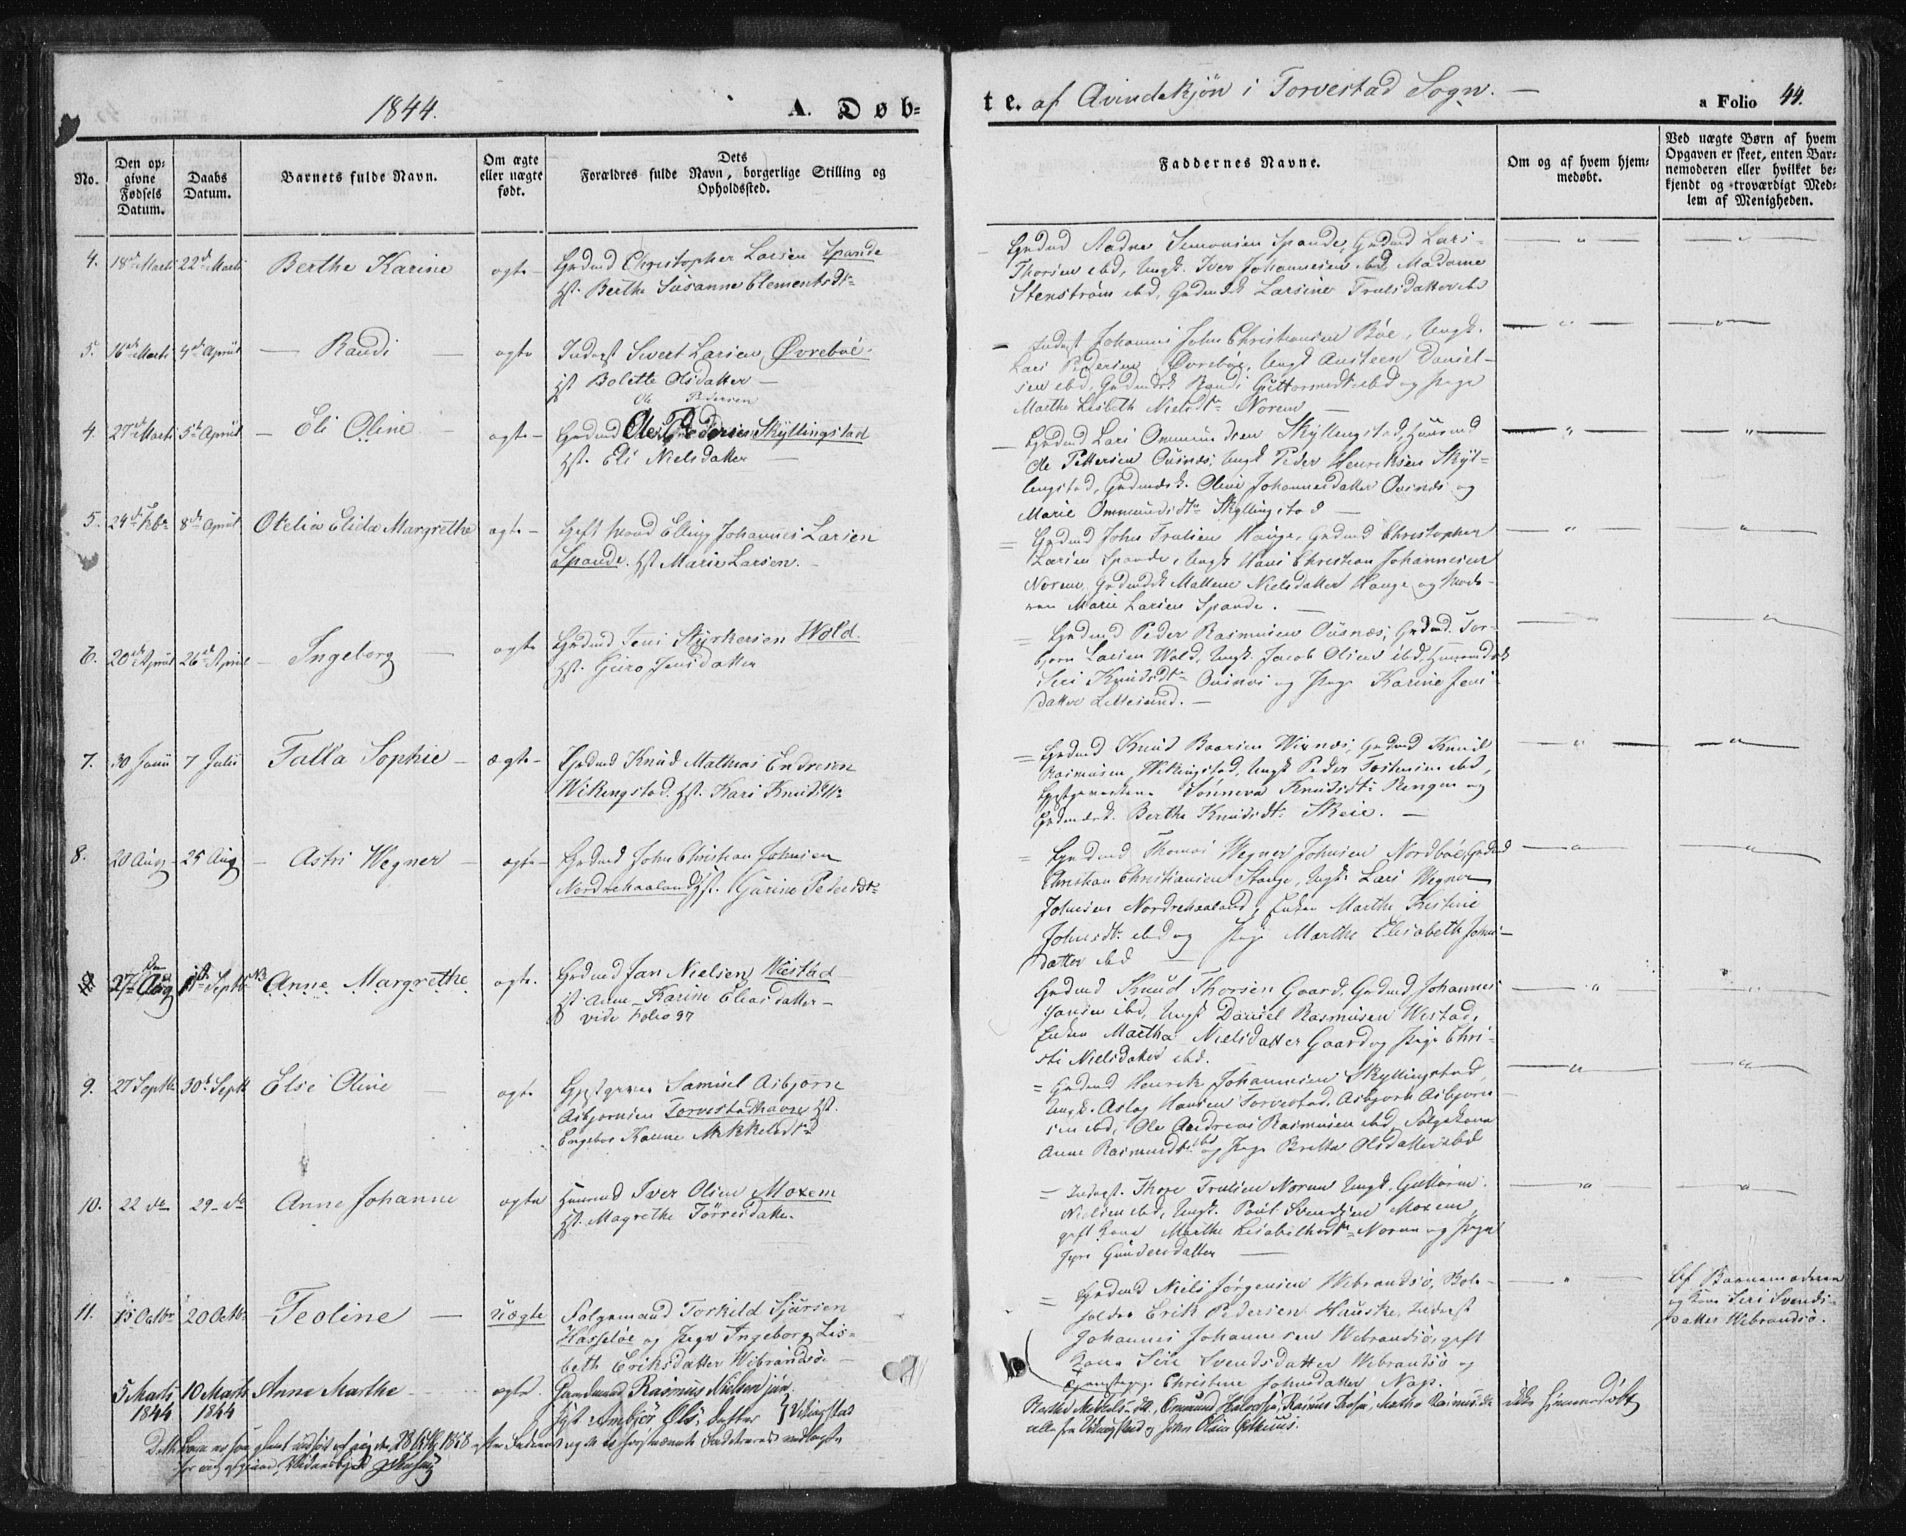 1844. A. Døb-
te. af Qvindekjøn i Torvestad Sogn. —
a Folio 44.
No.
Den op-
givne
Fødsels
Datum.
Daabs
Datum.
Barnets fulde Navn.
Om ægte
eller uægte
født.
Dets
Forældres fulde Navn, borgerlige Stilling og
Opholdssted.
Faddernes Navne.
Om og af hvem hjem-
medøbt.
Ved uægte Børn af hvem
Opgaven er skeet, enten Bar-
nemoderen eller hvilket be-
kjendt og troværdigt Med-
lem af Menigheden.
4. 18de Marts 22de Marts Berthe Karine ægte
Grdmd Christopher Larsen Spande
Hst. Berthe Susanne Clementsdtr
Grdmd Aadne Simonsen Spande, Grdmd Lars
Thorsen ibd, Ungk. Iver Johannesen ibd, Madame
Stenstrøm ibd, Larsine Trulsdatter ibd
5. 16de Marts 4de April — Randi — ægte
Inderst Sivert Larsen Øvreboe
Hst Bolette Olsdatter —
Inderst Johannes John Christiansen Bøe, Ungk.
Lars Pedersen Øvreboe, Ungk Austeen Daniel-
sen ibd, Randi Guttormsdtr ibd og Pige
Marthe Lisbeth Nielsdtr Norem —
4. 27de Marts 5te April — Eli Oline — ægte —
Ole Pedersen
Grdmd Ole Pedersen Skyllingstad
Hst. Eli Nielsdatter —
Grdmd Lars Ommundsen Skyllingstad, Huusmd
Ole Pettersen Ousnæs, Ungk Peder Henriksen Skyl-
lingstad, Oline Johannesdatter Ousnæs og
Marie Ommundsdtr Skyllingstad —
5. 24de Febr 8de April Otelia Elida Margrethe ægte —
Gift Mand Elling Johannes Larsen
Spande. Hst Marie Larsen. —
= Grdmd John Trulsen Hauge, Grdmd Christopher
Larsen Spande, Ungk Hans Christian Johannesen
Norem, Mallene Nielsdatter Hauge og Mode-
ren Marie Larsen Spande. —
6. 20de April 26de April — Ingeborg — ægte
Grdmd Jens Styrkersen Wold.
Hst. Guro Jensdatter
= Grdmd Peder Rasmusen Ousnæs, Grdmd. Tor-
bjørn Larsen Wold, Ungk. Jacob Olsen ibd,
Siri Knudsdtr Ousnæs og Pige Karine Jens-
datter Littlesund. —
7. 30 Junii 7 Julii Talla Sophie — ægte —
Grdmd Knud Mathias Endresen
Wikingstad. Hst. Kari Knudsdtr
= Grdmd Knud Baarsen Wignæs, Grdmd Knud
Rasmusen Wikingstad, Ungk Peder Torstensen ibd,
Sønneva Knudsdtr Ringen og
Berthe Knudsdtr Skeie. —
8. 20 Aug 25 Aug — Astri Wegner — ægte —
Grdmd John Christian Johnsen
Nordrehaaland, Hst. Gurine Pedersdtr
= Grdmd Thomas Wegner Johnsen Nordbøe, Grdmd
Christian Christiansen Stange, Ungk. Lars Wegner
Johnsen Nordrehaaland, Enken Marthe Kristine
Johnsdtr ibd og Pige Marthe Elisabeth Johns-
datter ibd —
27de Aug 1ste Septbr NB Anne Margrethe ægte.
Grdmd Jan Nielsen Wiestad
Hst. Anne Karine Eliasdatter —
vide Folio 97
Grdmd Knud Thorsen Gaard, Grdmd Johannes
Jansen ibd, Ungk Daniel Rasmusen Wistad,
Enken Martha Nielsdatter Gaard og Pige Chri-
sti Nielsdatter ibd.
9. 27 Septbr 30te Septbr Else Oline — ægte
Samuel Asbjørn
Asbjørnsen Torvestadhavn Hst.
Engebor Kanne Mikkelsdtr
= Grdmd Henrik Johannesen Skyllingstad,
Ungk. Aslag Hansen Torvestad, Asbjørn Asbjørn-
sen ibd, Ole Andreas Rasmusen ibd,
Anne Rasmusdtr ibd og Pige Britha Olsdatter ibd
10. 22 do 29 — do Anne Johanne ægte
Huusmd Iver Olsen Moxem
Hst. Magrethe Tørresdatter
= Inderst. Thore Trulsen Norem Ungk. Guttorm
Nielsen ibd, Ungk. Poul Svendsen Moxem,
gift Kone Marthe Norem og Pige
Gundersdatter —
11. 15 Octbr 20 Octbr Teoline — uægte
Selgemand Torkild Sjursen
Hasseløe og Pige Ingeborg Lis-
beth Eriksdatter Wibrandsø. —
= Grdmd Niels Jørgensen Wibrandsø, Bole-
holder Erik Pedersen Hauske, Inderst
Johannes Johannesen Wibrandsø, gift
Kone Siri Svendsdatter Wibrandsø og
Tjenestepige Christine Johnsdatter Nags.
Af Barnemoderen
og Kone Siri Svends-
datter Wibrandsø.
5 Marts
1844
10 Marts
1844
Anne Marthe — ægte.
Gaardmand Rasmus Nielsen jun.
Hst Anbjør Ols datter } Vikingstad
Berthe Mikkelsdtr, Ommund Halvorsen, Rasmus Martha Rasmusdtr
alle fra Vikingstad og John Olsen
ikke hjemmedøbt